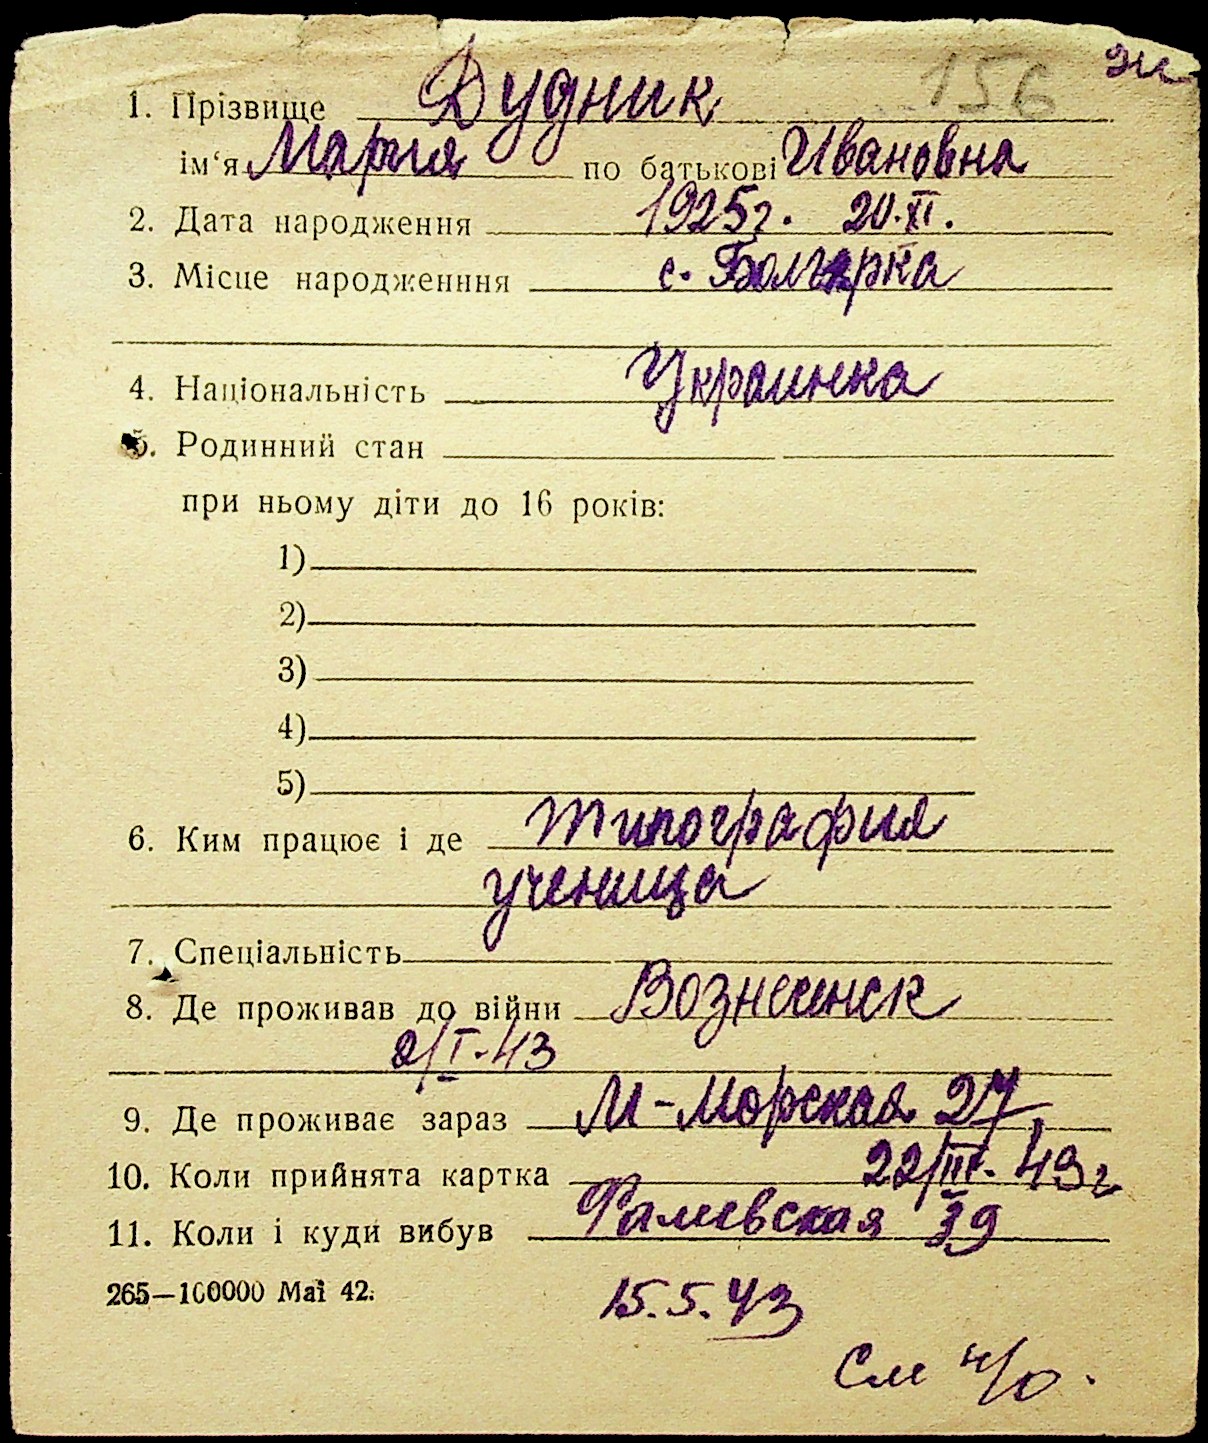 156 эи
1. Прізвище Дудник
ім‘я Мария по батькові Ивановна
2. Дата народження 1925г. 20.XI.
3. Місце народженння с. Болгарка
4. Національність Украинка
5. Родинний стан
при ньому діти до 16 років:
1)
2)
3)
4)
5)
6. Ким працює і де типография
ученица
7. Спеціальність
8. Де проживав до війни Вознесенск
2/I-43
9. Де проживає зараз М-Морская 27
10. Коли прийнята картка 22/III-43г
11. Коли і куди вибув Фалеевская 39
265—100000 Маї 42.
15.5.43
См н/о.